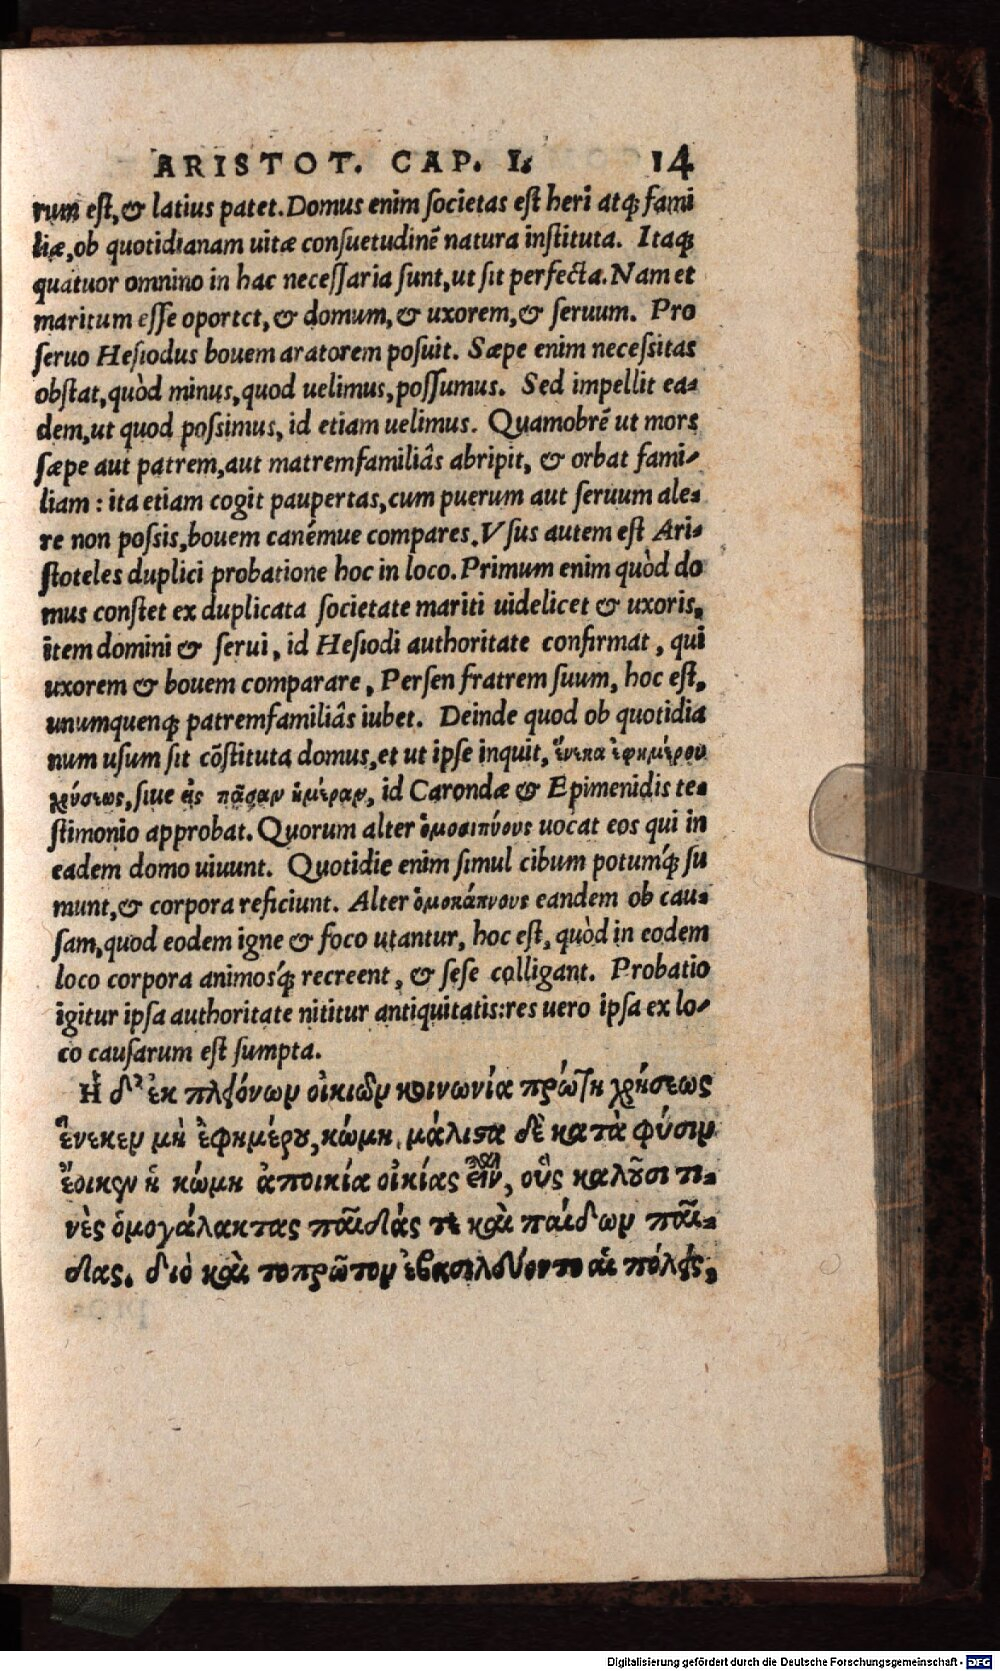 ARISTOT. CAP. I. 14
rum est, & latius patet. Domus enim societas est heri atq; fami
liæ, ob quotidianam uitæ consuetudinẽ natura instituta. Itaq;
quatuor omnino in hac necessaria sunt, ut sit perfecta. Nam et
maritum esse oportet, & domum, & uxorem, & seruum. Pro
seruo Hesiodus bouem aratorem posuit. Sæpe enim necessitas
obstat, quòd minus, quod uelimus, possumus. Sed impellit ea-
dem, ut quod possimus, id etiam uelimus. Quamobrẽ ut mors
sæpe aut patrem, aut matremfamiliâs abripit, & orbat fami-
liam: ita etiam cogit paupertas, cum puerum aut seruum ale-
re non possis, bouem canémue compares. Vsus autem est Ari-
stoteles duplici probatione hoc in loco. Primum enim quòd do
mus constet ex duplicata societate mariti uidelicet & uxoris,
item domini & serui, id Hesiodi authoritate confirmat, qui
uxorem & bouem comparare, Persen fratrem suum, hoc est,
unumquenq; patremfamiliâs iubet. Deinde quod ob quotidia
num usum sit cõstituta domus, et ut ipse inquit, ἕνεκα ἐφημέρου
χρήσεως, siue εἰς πᾶσαν ἡμέραν, id Carondæ & Epimenidis te-
stimonio approbat. Quorum alter ὁμοσιπύους uocat eos qui in
eadem domo uiuunt. Quotidie enim simul cibum potumq́; su
munt, & corpora reficiunt. Alter ὁμοκάπνους eandem ob cau-
sam, quod eodem igne & foco utantur, hoc est, quòd in eodem
loco corpora animosq́; recreent, & sese colligant. Probatio
igitur ipsa authoritate nititur antiquitatis: res uero ipsa ex lo-
co causarum est sumpta.
Ἡ δ' ἐκ πλειόνων οἰκιῶν κοινωνία πρώτη χρήσεως
ἕνεκεν μὴ ἐφημέρου, κώμη. μάλιστα δὲ κατὰ φύσιν
ἔοικεν ἡ κώμη ἀποικία οἰκίας εἶναι, οὓς καλοῦσί τι-
νὲς ὁμογάλακτας παῖδάς τε καὶ παίδων παῖ-
δας. διὸ καὶ τοπρῶτον ἐβασιλεύοντο αἱ πόλεις,